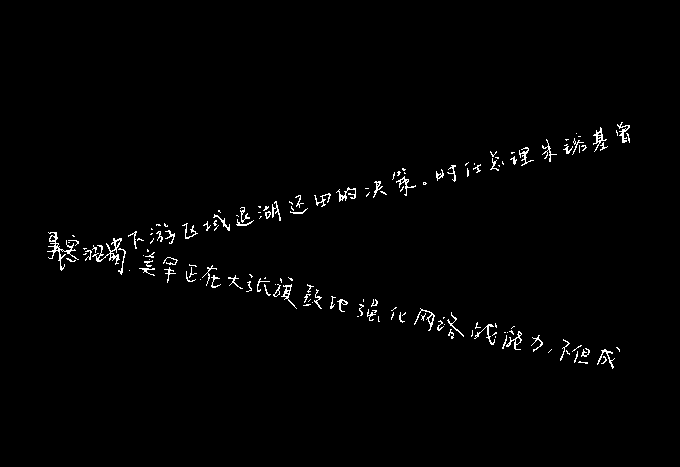 下游区域退湖还田的决策。时任总理朱镕基曾
美军正在大张旗鼓地强化网络战能力，不但成